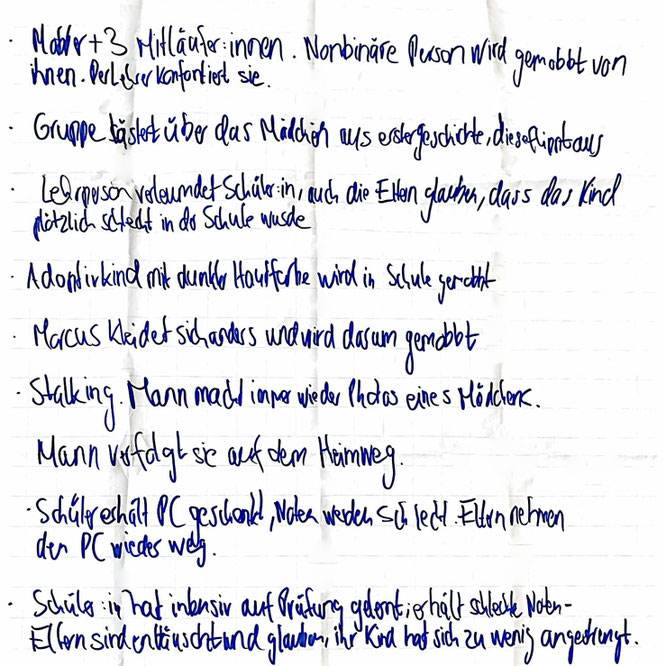 · Mobber + 3 Mitläufer:innen. Nonbinäre Person wird gemobbt von
ihnen. Der Lehrer konfontiert sie.
· Gruppe lästert über das Mädchen aus erster geschichte, diese flippt aus
· Lehrperson verleumdet Schüler:in, auch die Eltern glauben, dass das Kind
plötzlich schlecht in der Schule wurde
· Adoptivkind mit dunkler Hautfarbe wird in Schule gemobbt
· Marcus kleidet sich anders und wird darum gemobbt
· Stalking. Mann macht immer wieder Photos eines Mädchens.
Mann verfolgt sie auf dem Heimweg.
· Schüler erhält PC geschenkt, Noten werden schlecht. Eltern nehmen
den PC wieder weg.
· Schüler:in hat intensiv auf Prüfung gelernt, erhält schlechte Noten-
Eltern sind enttäuscht und glauben, ihr Kind hat sich zu wenig angestrengt.